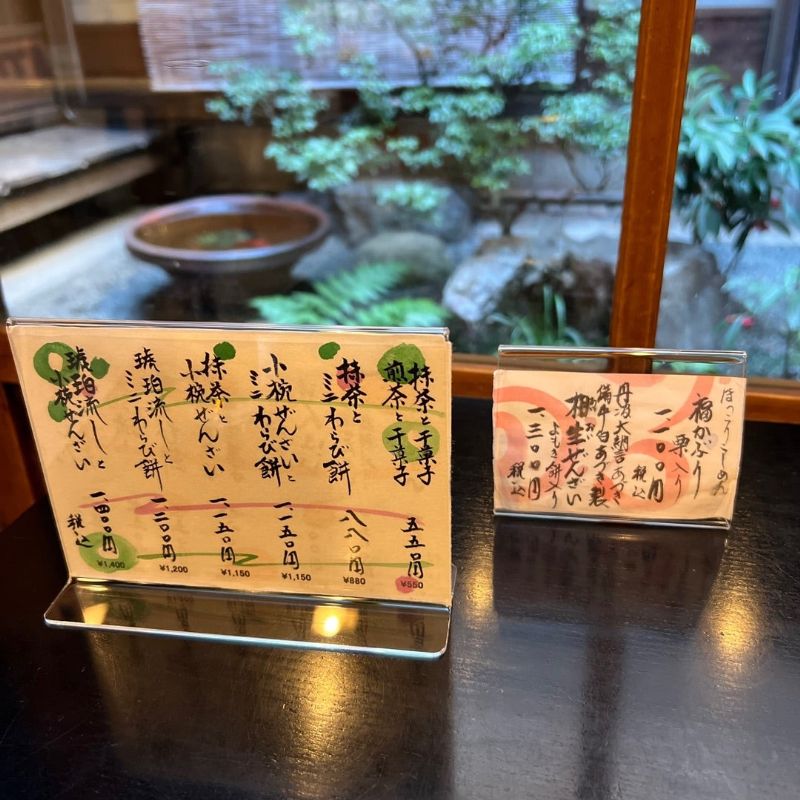 抹茶と干菓子
煎茶と干菓子
五五〇円
¥550
抹茶と
ミニわらび餅
八八〇円
¥880
小椀ぜんざいと
ミニわらび餅
一一五〇円
¥1,150
抹茶と
小椀ぜんざい
一一五〇円
¥1,150
琥珀流しと
ミニわらび餅
一二〇〇円
¥1,200
琥珀流しと
小椀ぜんざい
一四〇〇円
¥1,400
税込
ほっこりこーめん
福かぶり
栗入り
一二〇〇円
税込
丹波大納言あづき
備中白あづき製
相生ぜんざい
よもぎ餅入り
一三〇〇円
税込